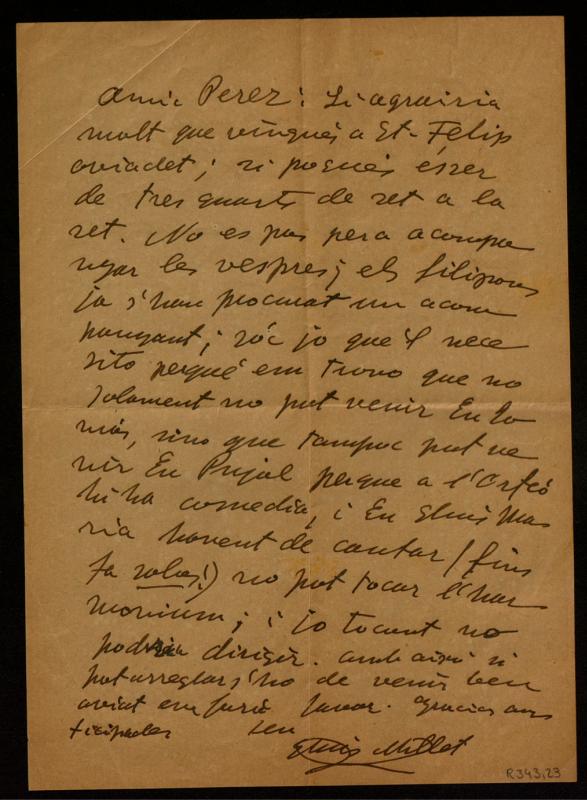 Amic Perez: Li agrairia
molt que vingués a St. Felip
aviadet; si pogués ésser
de tres quarts de set a la
set. No es pas pera acompa
nyar les vespres; els filipons
ja s'han procurat un acom
panyant; sóc jo que'l nece
sito perqué em trovo que no
solament no pot venir En To
más, sino que tampoc pot ve
nir En Pujol perque a l'Orfeó
hi ha comedia, i En Lluis Ma
ria havent de cantar (fins
fa solos!) no pot tocar l'har
monium; i jo tocant no
podria dirigir. Amb aixó si
pot arreglar-s'ho de venir ben
aviat em fará favor. Gracias ans
ticipades seu
Lluis Millet
R.343,23